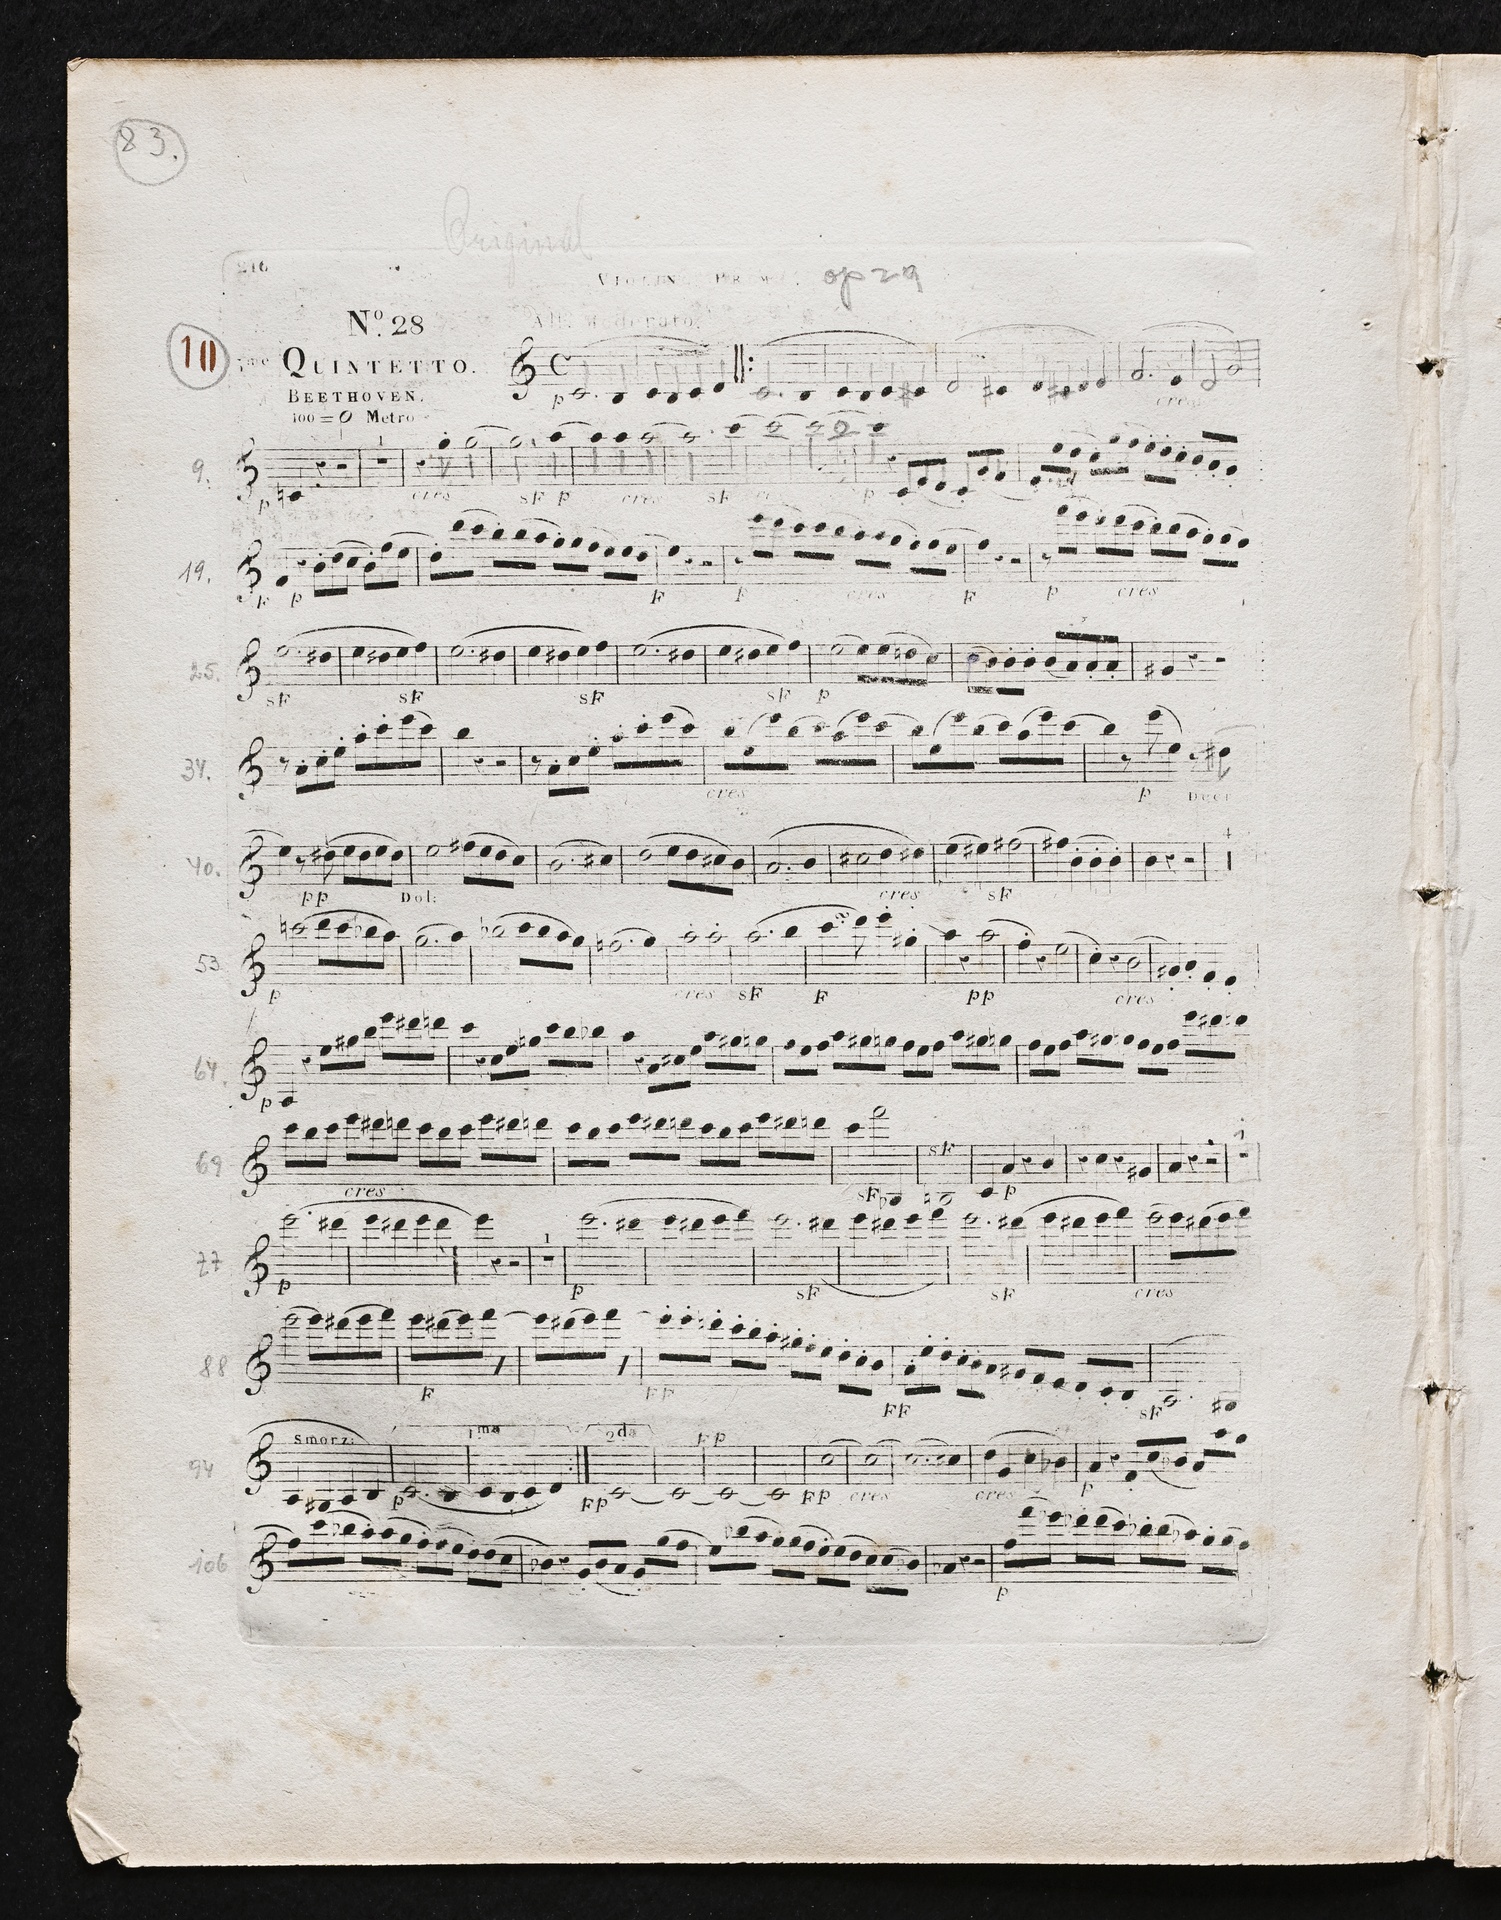 83.
Original
216
VIOLINO PRIMO. op 29
Nº. 28
All. Moderato.
10
QUINTETTO.
BEETHOVEN.
100 = Metro
p cres
9.
1
p cres sF p cres sF p
19.
F p F F cres F p cres
25.
sF sF sF sF p
34.
cres p Decr
40.
4
pp Dol: cres sF
53
p cres sF F pp cres
64.
p
69
1
sF
cres sF p p
77
1
p p sF sF cres
88
F FF FF sF
94
smorz: 1ma 2da Fp
p Fp Fp cres cres p
106
p